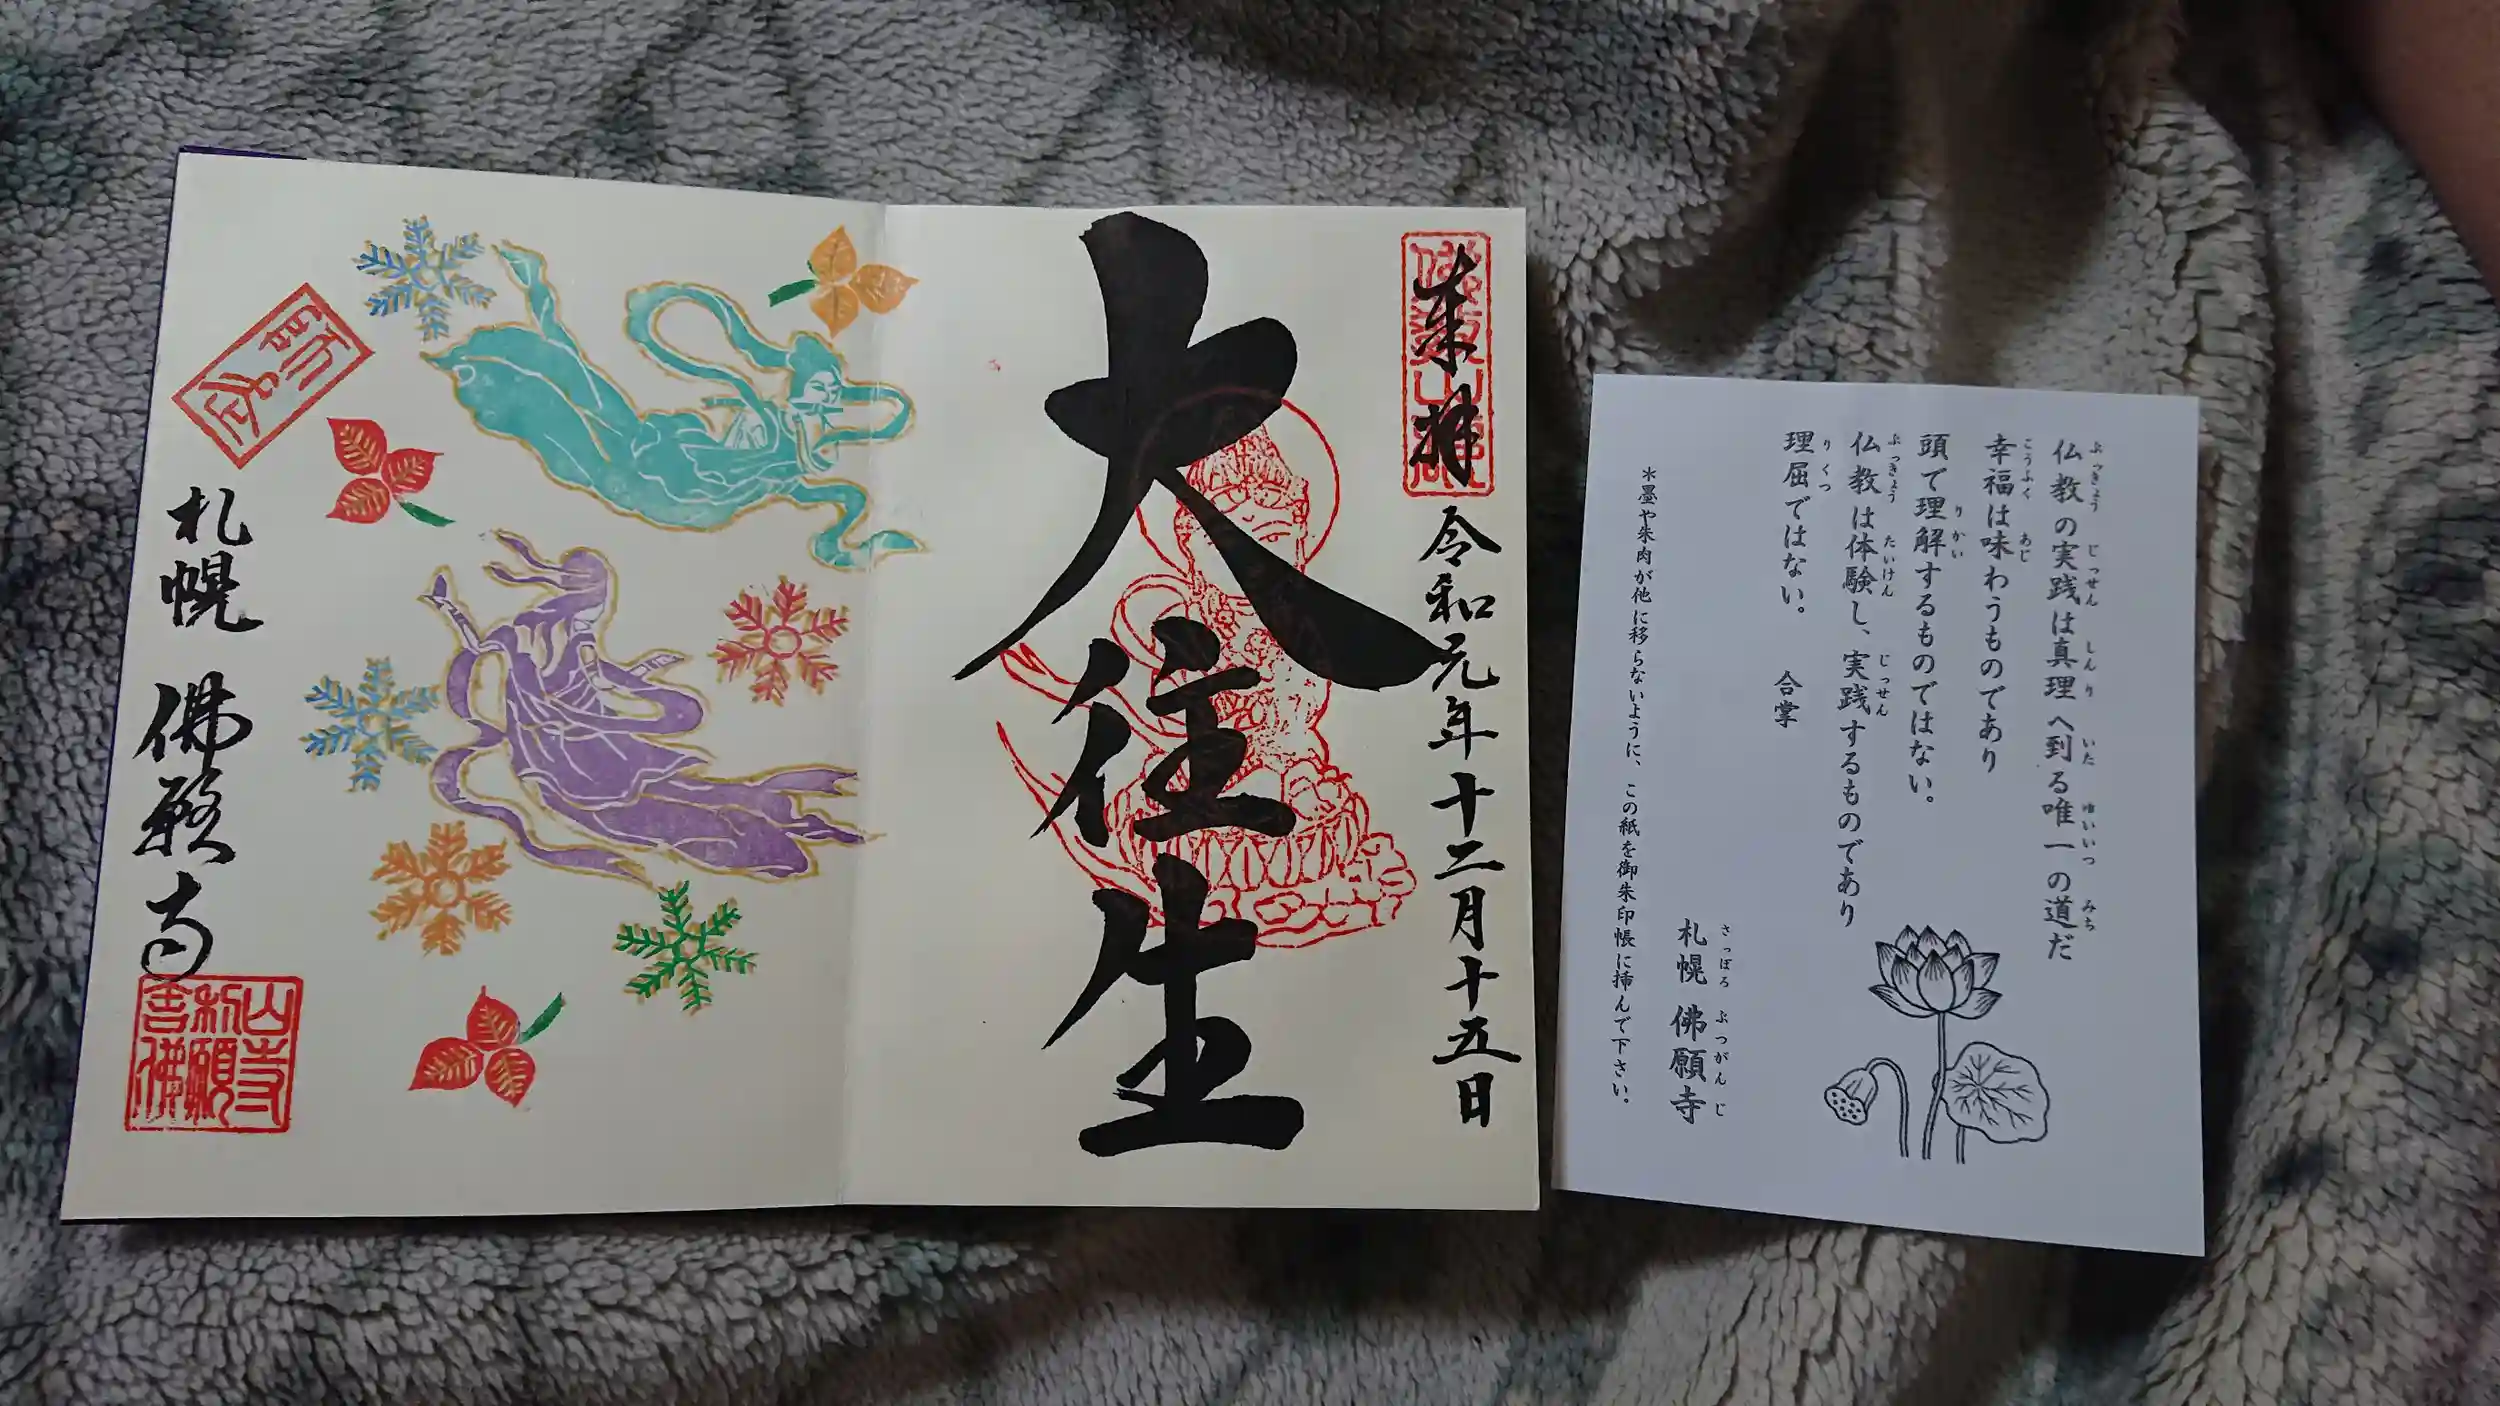 奉拝
令和元年十二月十五日
大往生
札幌 佛願寺
仏教の実践は真理へ到る唯一の道だ
幸福は味わうものであり
頭で理解するものではない。
仏教は体験し、実践するものであり
理屈ではない。 合掌
札幌 佛願寺
＊墨や朱肉が他に移らないように、この紙を御朱印帳に挿んで下さい。